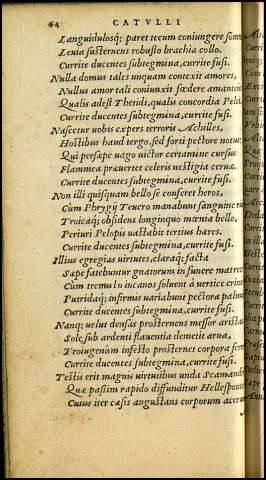 64 CATVLLI
Languidulosq; paret tecum coniungere somn
Leuia susternens robusto brachia collo.
Currite ducentes subtegmina, currite fusi.
Nulla domus tales unquam contexit amores,
Nullus amor tali coniunxit fœdere amanteis
Qualis adest Thetidi, qualis concordia Pele
Currite ducentes subtegmina, currite fusi.
Nascetur uobis expers terroris Achilles,
Hostibus haud tergo, sed forti pectore notus
Qui persæpe uago uictor certamine cursus
Flammea præuertet celeris uestigia ceruæ.
Currite ducentes subtegmina, currite fusi.
Non illi quisquam bello se conferet heros,
Cum Phrygij Teucro manabunt sanguine
Troicaq; obsidens longinquo mœnia bello,
Periuri Pelopis uastabit tertius hæres.
Currite ducentes subtegmina, currite fusi.
Illius egregias uirtutes, claraq; facta
Sæpe fatebuntur gnatorum in funere matres
Cum tremulo incanos soluent à uertice crin
Putridaq; infirmis uariabunt pectora palm
Currite ducentes subtegmina, currite fusi.
Nanq; uelut densas prosternens messor arista
Sole sub ardenti flauentia demetit arua,
Troiugenum infesto prosternet corpora ferr
Currite ducentes subtegmina, currite fusi.
Testis erit magnis uirtutibus unda Scamand
Quæ passim rapido diffunditur Hellespont
Cuius iter cæsis angustans corporum acer